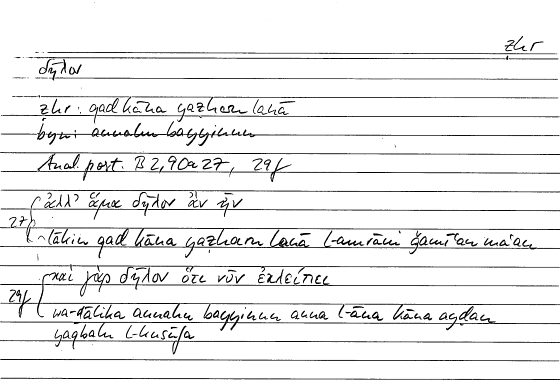 ẓhr
δῆλον
ẓhr : qad kāna yaẓharu lanā
byn : annahu bayyinun
Anal. post. B 2, 90a27, 29f
27 ἀλλ' ἅμα δῆλον ἂν ἦν
lākin qad kāna yaẓharu lanā l-amrāni ǧamīʿan maʿan
29f καὶ γὰρ δῆλον ὅτι νῦν ἐκλείπει
wa-ḏālika annahu bayyinun anna l-āna kāna
yaqbalu l-kusūfa